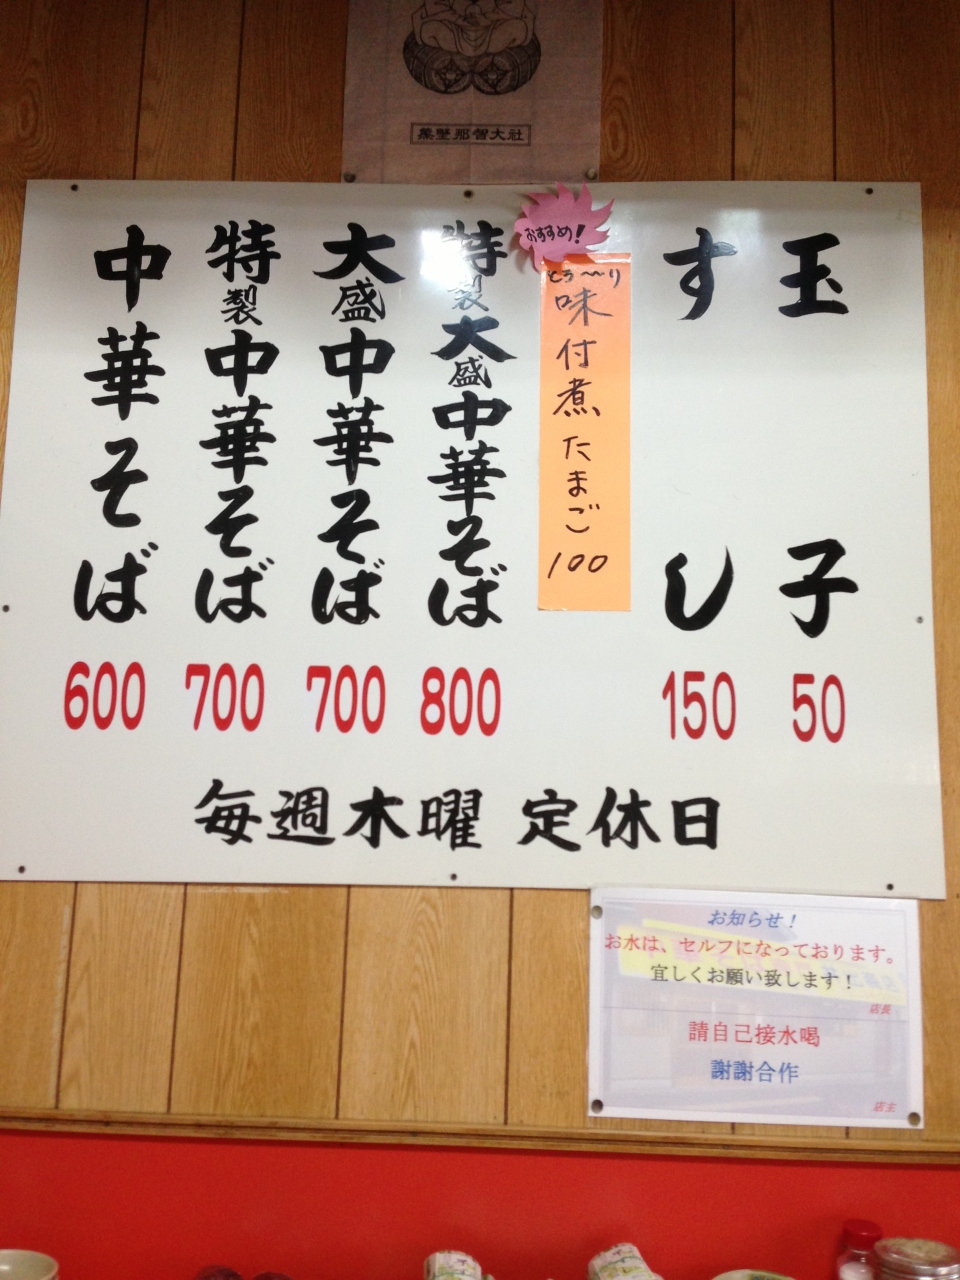 熊野那智大社
中華そば 600
特製中華そば 700
大盛中華そば 700
特製大盛中華そば 800
おすすめ!
とろ〜〜り
味付煮たまご 100
すし 150
玉子 50
毎週木曜 定休日
お知らせ!
お水は、セルフになっております。
宜しくお願い致します!
店長
請自己接水喝
謝謝合作
店主